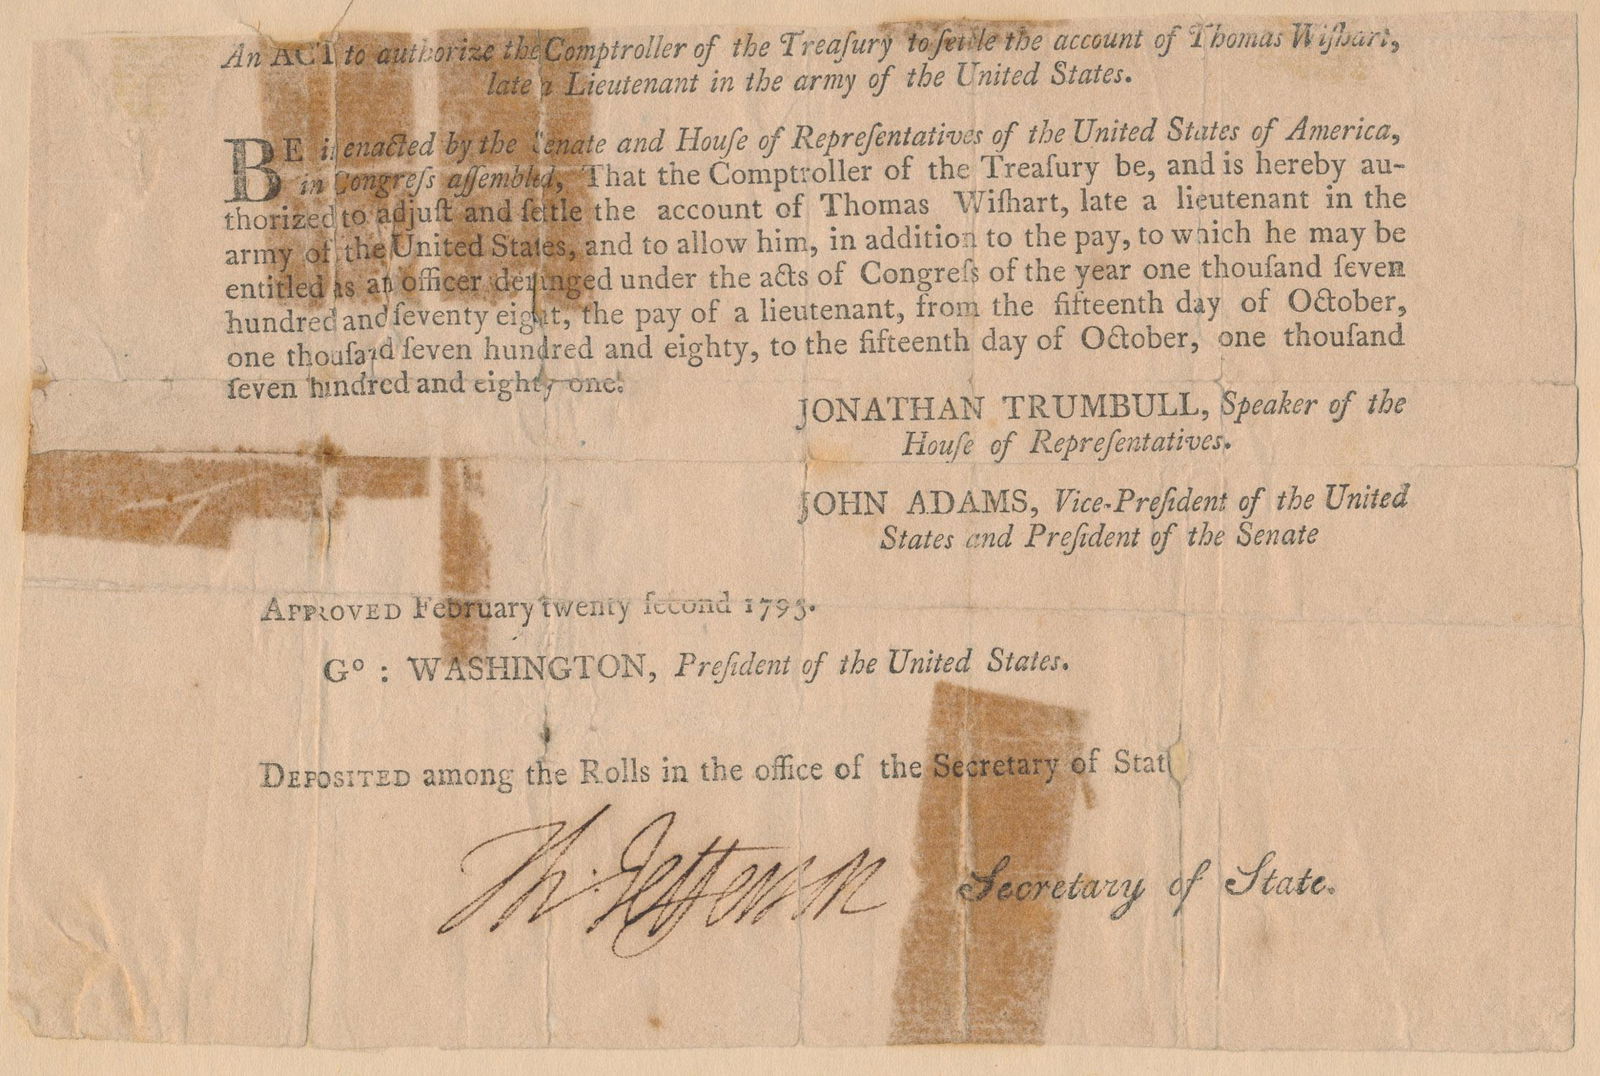 An ACT to authorize the Comptroller of the Treaſury to ſettle the account of Thomas Wiſhart,
late a Lieutenant in the army of the United States.
BE it enacted by the Senate and Houſe of Repreſentatives of the United States of America,
in Congreſs aſſembled, That the Comptroller of the Treaſury be, and is hereby au-
thorized to adjuſt and ſettle the account of Thomas Wiſhart, late a lieutenant in the
army of the United States, and to allow him, in addition to the pay, to which he may be
entitled as an officer deranged under the acts of Congreſs of the year one thouſand ſeven
hundred and ſeventy eight, the pay of a lieutenant, from the fifteenth day of October,
one thouſand ſeven hundred and eighty, to the fifteenth day of October, one thouſand
ſeven hundred and eighty one.
JONATHAN TRUMBULL, Speaker of the
Houſe of Repreſentatives.
JOHN ADAMS, Vice-Preſident of the United
States and Preſident of the Senate
APPROVED February twenty ſecond 1793.
Go : WASHINGTON, Preſident of the United States.
DEPOSITED among the Rolls in the office of the Secretary of Stat
Th: Jefferson Secretary of State.